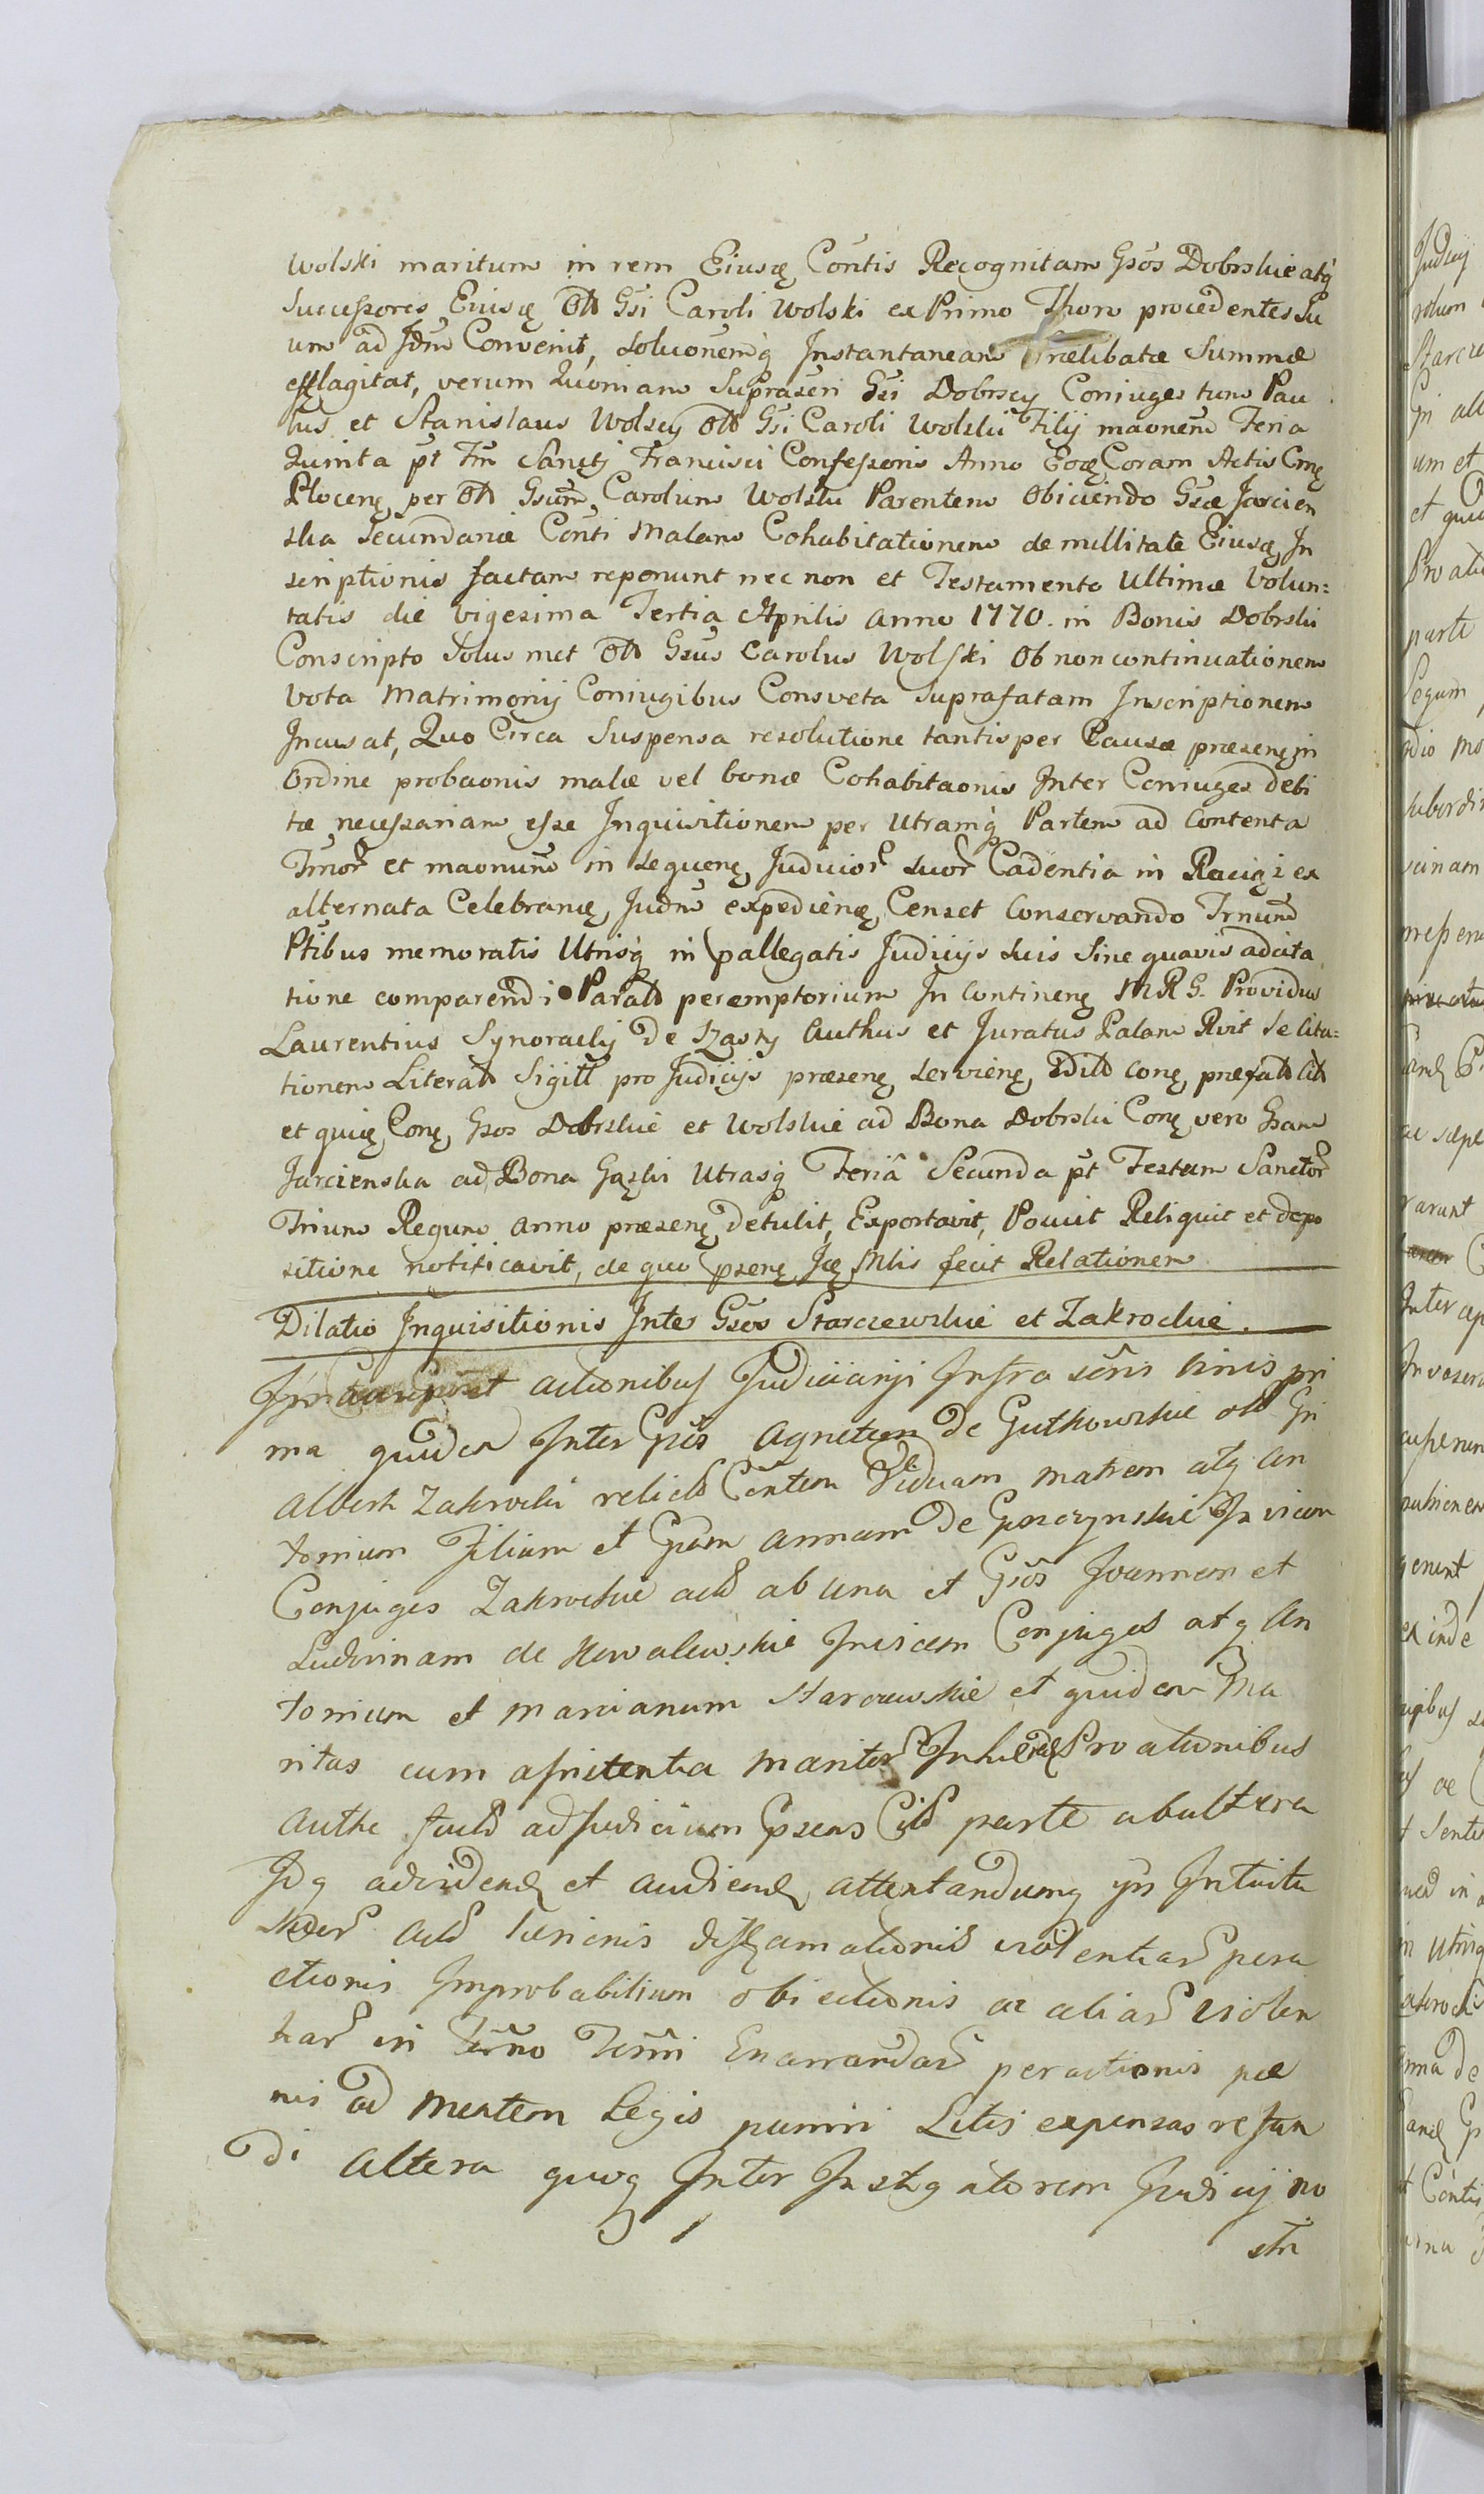 Wolski maritum in rem Eiusę Contis Recognitam Gsos Dobrskie atq
Successores Eiusę Olt Gsi Caroli Wolski ex Primo Thoro procedentes Su
um ad Jdm Convenit, Soluonemq Instantaneam Prælibatæ Summæ
efflagitat, verum Quoniam Suprascri Gsi Dobrscy Coniuges tum Pau
lus et Stanislaus Wolscy Olt Gsi Caroli Wolski Filij maonem Feria
Quinta pt Fm Sancti Francisci Confessoris Anno Eoę Coram Actis Cmę
Plocenę per Olt Gsum Carolum Wolski Parentem Obiciendo Gsæ Jarcien
ska Secundariæ Conti Malam Cohabitationem de nullitate Eiusę In
scriptionis factam reponunt nec non et Testamento Ultimæ Volun=
tatis die vigesima Tertia Aprilis Anno 1770. in Bonis Dobrski
Conscripto Solus met Olt Gsus Carolus Wolski Ob non continuationem
Vota Matrimonij Coniugibus Consveta Suprafatam Inscriptionem
Incusat, Quo Circa Suspensa resolutione tantisper Causæ præsenę in
Ordine probaonis malæ vel bonæ Cohabitaonis Inter Coniuges debi
tæ necessariam esse Inquisitionem per Utramq Partem ad Contenta
Tmor et maonum in sequenę Judicior suor Cadentia in Raciąż ex
alternata Celebranę Judm expedienę Censet Conservando Trnum
Ptibus memoratis Utrisq in pallegatis Judicijs suis Sine quavis adcita
tione comparendi Parat peremptorium In Continenę M R G. Providus
Laurentius Synoracky De Szasty Authus et Juratus Palam Rvit Se Cita=
tionem Literat Sigill pro Judicijs præsenę servienę Edit Conę præfat Cit
et quię Conę Gsos Dobrskie et Wolskie ad Bona Dobrski Conę vero Gsam
Jarcienska ad Bona Gąski Utrasq Feriâ Secunda pt Festum Sanctor
Trium Regum Anno præsenę detulit, Exportavit, Posuit Reliquit et depo
sitione notificavit, de quo psenę Jcę Mtis fecit Relationem
Dilatio Inquisitionis Inter Gsos Starczewskie et Zakrockie.
actionibus Judiciarij Infra scris binis pri
ma quidem Inter Gsos Agnetem De Gutkowskie olt Gsi
Albert Zakrocki relict Contem Viduam matrem atq An
tonium Filium et Gsam Annam De Invicem
Conjuges Zakrockie act ab una et Gsos Joannem et
Ludvinam de Kowalewskie Invicem Conjuges atq An
tonium et Marianum Starczewskie et quidem Ma
ritas cum assistentia Maritor Pro actionibus
Authe fact ad Judicium psens Cit parte ab altera
Idq ad videnę et audienę attentandumq ijs Intuitu
act lesionis diffamationis violentiar pera
ctionis Improbabilium obiectionis ac aliar violen
tiar in Trno Enarrandar peractionis pæ
nis ad mentem Legis puniri Litis expensas refun
di Altera quoq Inter Instigatorem Judicij no
stri